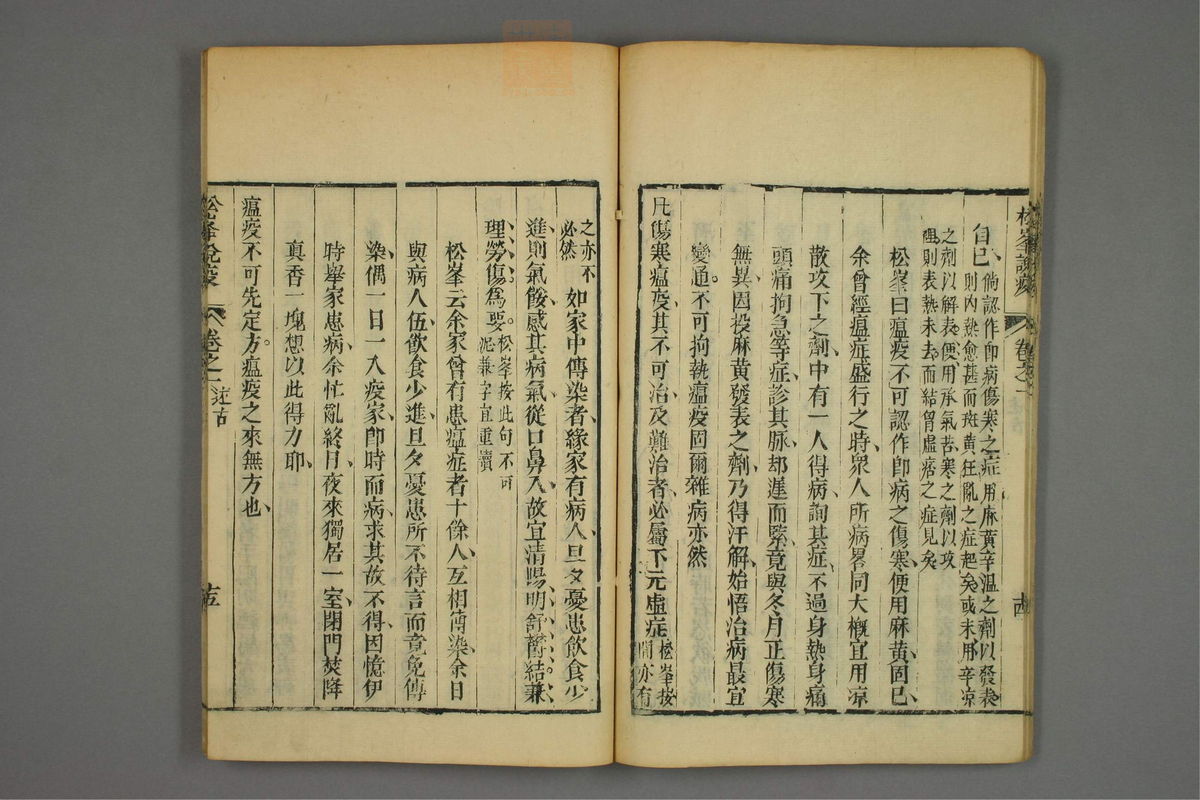 松峯說疫
卷之一
述古
自已
倘認作卽病傷寒之症用麻黃辛溫之劑以發表
則內熱愈甚而斑黃狂亂之症起矣或未用辛凉
之劑以解表便用承氣苦寒之劑以攻
裡則表熱未去而結胷虛痞之症見矣
松峯曰瘟疫不可認作卽病之傷寒便用麻黃固已
余曾經瘟症盛行之時衆人所病畧同大槪宜用凉
散攻下之劑中有一人得病詢其症不過身熱身痛
頭痛拘急等症診其脉却遲而緊竟與冬月正傷寒
無異因投麻黃發表之劑乃得汗解始悟治病最宜
變通不可拘執瘟疫固爾雜病亦然
凡傷寒瘟疫其不可治及難治者必屬下元虛症
松峯按
間亦有
之亦不
必然
如家中傳染者緣家有病人旦夕憂患飲食少
進則氣餒感其病氣從口鼻入故宜清陽明舒鬱結兼
理勞傷爲要
松峯按此句不可
泥兼字宜重讀
松峯云余家曾有患瘟症者十餘人互相傳染余日
與病人伍飲食少進旦夕憂患所不待言而竟免傳
染偶一日一入疫家卽時而病求其故不得因憶伊
時舉家患病余忙亂終日夜來獨居一室閉門焚降
真香一塊想以此得力耶
瘟疫不可先定方瘟疫之來無方也
松峯說疫
卷之一
述古